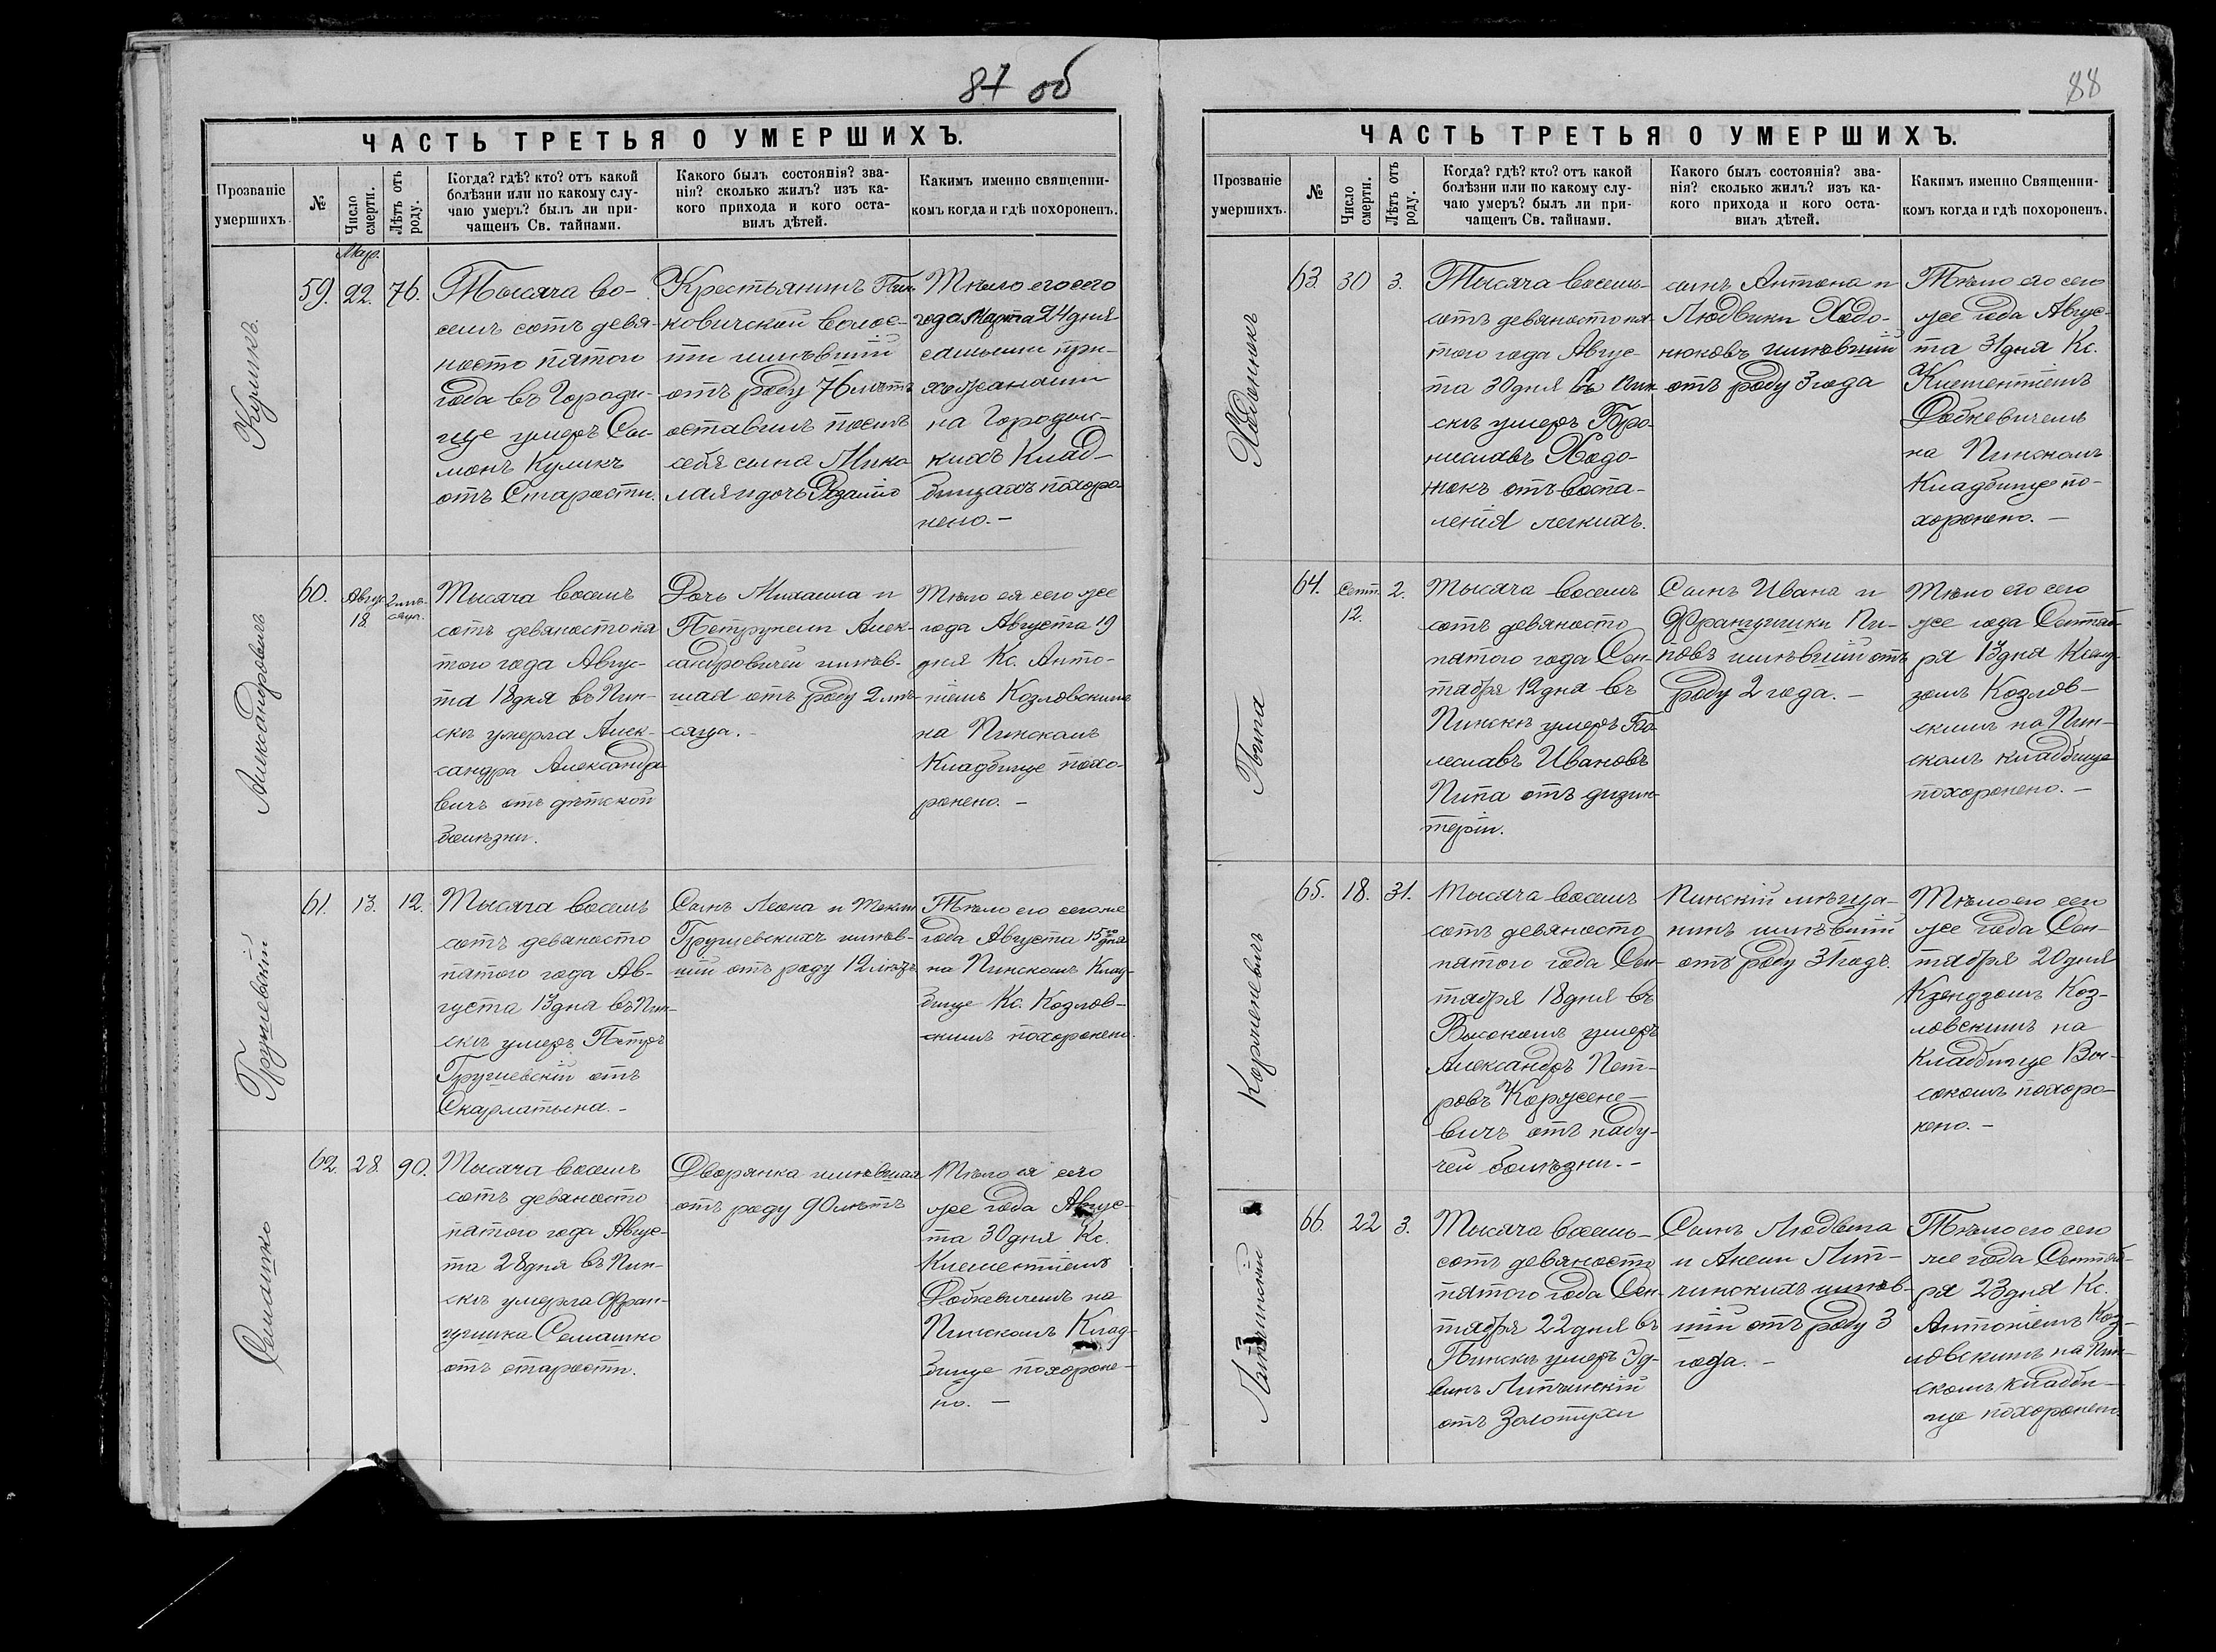 87 об
ЧАСТЬ ТРЕТЬЯ О УМЕРШИХЪ.
Прозваніе
умершихъ.
№
Число
смерти.
Лѣтъ отъ
роду.
Когда? гдѣ? кто? отъ какой
болѣзни или по какому слу-
чаю умеръ? былъ ли при-
чащенъ Св. тайнами.
Какого былъ состоянія? зва-
нія? сколько жилъ? изъ ка-
кого прихода и кого оста-
вилъ дѣтей.
Какимъ именно священни-
комъ когда и гдѣ похороненъ.
Куликъ.
59.
Мар.
22.
76.
Тысяча во-
семь сотъ девя-
носто пятого
года въ Городи-
ще умеръ Си-
монъ Куликъ
отъ Старости.
Крестьянинъ Пин-
ковичской волос-
ти имѣвшій
отъ роду 76 лѣтъ
оставилъ послѣ
себя сына Мико
лая и дочь Розалію
Тѣло его сего
года Марта 24 дня
самыми при-
хожанами
на Городис-
кихъ Клад-
бищахъ похоро-
нено. –
Александровичъ
60.
Авгус
18.
2 мѣ-
сяца.
Тысяча восемь
сотъ девяносто пя
того года Авгус-
та 18 дня въ Пин-
скѣ умерла Алек-
сандра Александро
вичъ отъ дѣтской
болѣзни.
Дочь Михаила и
Петрунели Алек-
сандровичей имѣв-
шая отъ роду 2 мѣ-
сяца. –
Тѣло ея сего же
года Августа 19
дня Кс. Анто-
ніемъ Козловскимъ
на Пинскомъ
Кладбище похо-
ронено. –
Грушевскій
61.
13.
12.
Тысяча восемь
сотъ девяносто
пятого года Ав-
густа 13 дня въ Пин-
скѣ умеръ Петръ
Грушевскій отъ
Скарлатына. –
Сынъ Леона и Текли
Грушевскихъ имѣв-
шій отъ роду 12 лѣтъ
Тѣло его сего же
года Августа 15го дня
на Пинскомъ Клад-
бище Кс. Козлов-
скимъ похоронено.
Семашко
62.
28.
90.
Тысяча восемь
сотъ девяносто
пятого года Авгус-
та 28 дня въ Пин-
скѣ умерла Фран-
цишка Семашко
отъ старости.
Дворянка имѣвшая
отъ роду 90 лѣтъ
Тѣло ея сего
же года Авгус-
та 30 дня Кс.
Клементіемъ
Добкевичемъ на
Пинскомъ Клад-
бище похороне-
но. –
88
ЧАСТЬ ТРЕТЬЯ О УМЕРШИХЪ.
Прозваніе
умершихъ.
№
Число
смерти.
Лѣтъ отъ
роду.
Когда? гдѣ? кто? отъ какой
болѣзни или по какому слу-
чаю умеръ? былъ ли при-
чащенъ Св. тайнами.
Какого былъ состоянія? зва-
нія? сколько жилъ? изъ ка-
кого прихода и кого оста-
вилъ дѣтей.
Какимъ именно Священни-
комъ когда и гдѣ похороненъ.
Ходонюкъ
63.
30
3.
Тысяча восемь-
сотъ девяносто пя-
того года Авгус-
та 30 дня въ Пин
скѣ умеръ Бро-
ниславъ Ходо-
нюкъ отъ воспа-
ленія легкихъ.
сынъ Антона и
Людвики Ходо-
нюковъ имѣвшій
отъ роду 3 года
Тѣло его сего
же года Авгус-
та 31 дня Кс.
Клементіемъ
Добкевичемъ
на Пинскомъ
Кладбище по-
хоронено. –
Пипа
64.
Сент.
12.
2.
Тысяча восемь
сотъ девяносто
пятого года Сен-
тября 12 дня въ
Пинскѣ умеръ Бо-
леславъ Ивановъ
Пипа отъ дизин-
теріи.
Сынъ Ивана и
Францишки Пи-
повъ имѣвшій отъ
роду 2 года. –
Тѣло его сего
же года Сентяб-
ря 13 дня Ксенд-
зомъ Козлов-
скимъ на Пин-
скомъ кладбище
похоронено. –
Корженевичъ
65.
18.
31.
Тысяча восемь
сотъ девяносто
пятого года Сен-
тября 18 дня въ
Высокомъ умеръ
Александръ Пет-
ровъ Коржене-
вичъ отъ паду-
чей болѣзни. –
Пинскій мѣща-
нинъ имѣвшій
отъ роду 31 годъ.
Тѣло его сего
же года Сен-
тября 20 дня
Ксендзомъ Коз-
ловскимъ на
Кладбище Вы-
сокомъ похоро-
нено. –
Липчинскій
66.
22
3.
Тысяча восемь-
сотъ девяносто
пятого года Сен-
тября 22 дня въ
Пинскѣ умеръ Эд-
винъ Липчинскій
отъ Золотухи
Сынъ Людвига
и Анели Лип-
чинскихъ имѣв-
шій отъ роду 3
года. –
Тѣло его сего
же года Сентяб-
ря 23 дня Кс.
Антоніемъ Коз-
ловскимъ на Пин-
скомъ кладби-
ще похоронено.